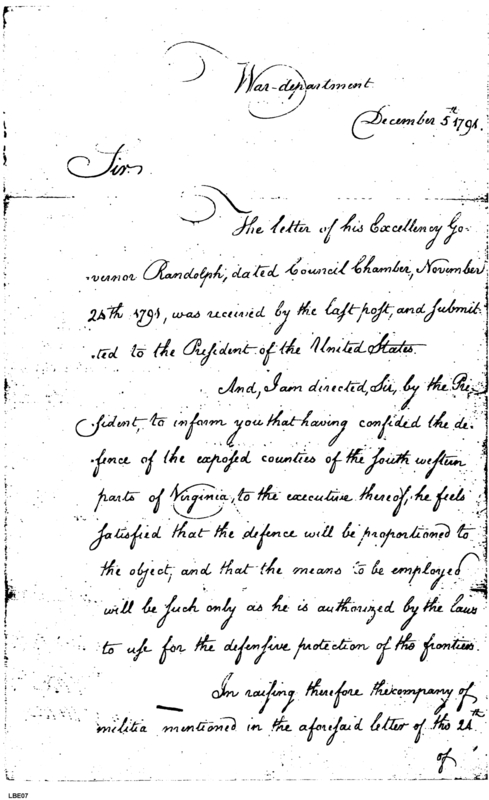 War-department
December 5th 1791.
Sir
The letter of his Excellency Go-
-vernor Randolph, dated Council Chamber, November
24th 1791, was received by the last post, and submit-
-ted to the President of the United States.
And, I am directed, Sir, by the Pre-
-sident, to inform you that having confided the de-
-fence of the exposed counties of the south western
parts of Virginia, to the executive thereof, he feels
satisfied that the defence will be proportioned to
the object, and that the means to be employed
will be such only as he is authorized by the laws
to use for the defensive protection of the frontiers.
In raising therefore the company of
militia mentioned in the aforesaid letter of the 24th
of
LBE07